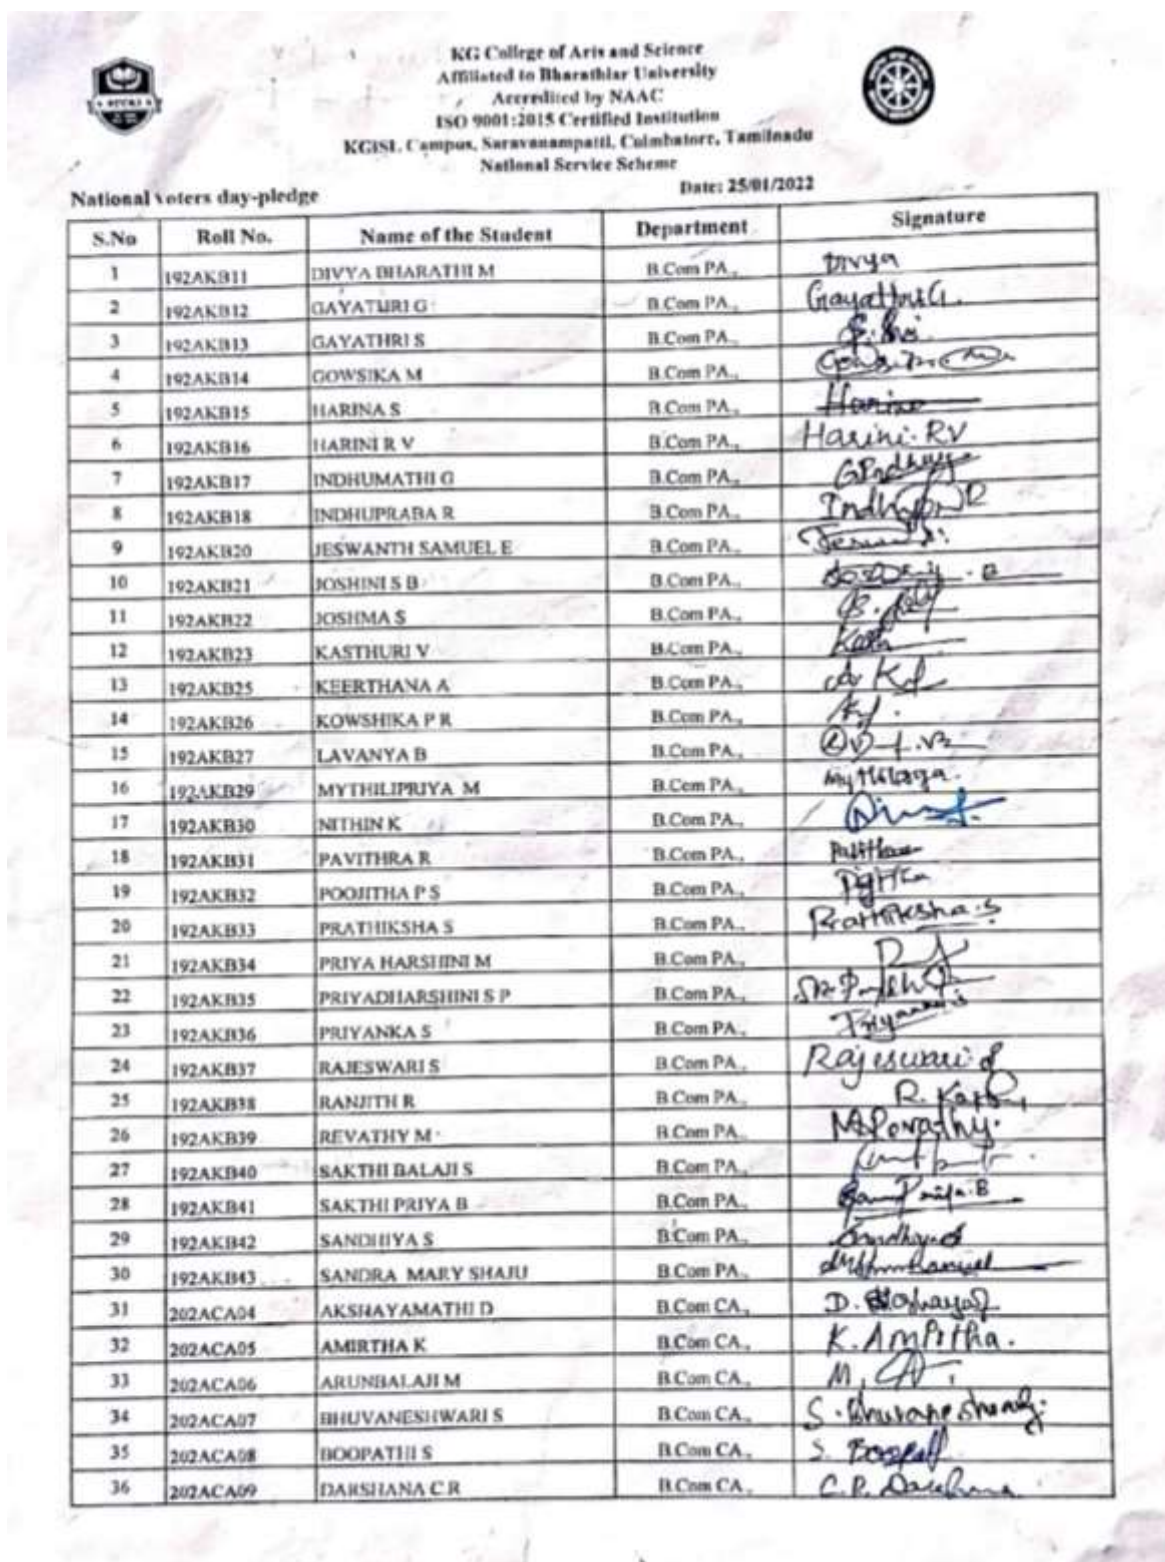 KG College of Arts and Science
Affiliated to Bharathiar University
Accredited by NAAC
ISO 9001:2015 Certified Institution
KGISL Campus, Saravanampatti, Coimbatore, Tamilnadu
National Service Scheme
National voters day-pledge Date: 25/01/2022
S.No Roll No. Name of the Student Department Signature
1 192AKB11 DIVYA BHARATHI M B.Com PA., Divya
2 192AKB12 GAYATHRI G B.Com PA., Gayathri G.
3 192AKB13 GAYATHRI S B.Com PA.,
4 192AKB14 GOWSIKA M B.Com PA.,
5 192AKB15 HARINA S B.Com PA., Harina
6 192AKB16 HARINI R V B.Com PA., Harini. RV
7 192AKB17 INDHUMATHI G B.Com PA.,
8 192AKB18 INDHUPRABA R B.Com PA.,
9 192AKB20 JESWANTH SAMUEL E B.Com PA.,
10 192AKB21 JOSHINI S B B.Com PA.,
11 192AKB22 JOSHMA S B.Com PA.,
12 192AKB23 KASTHURI V B.Com PA.,
13 192AKB25 KEERTHANA A B.Com PA.,
14 192AKB26 KOWSHIKA P R B.Com PA.,
15 192AKB27 LAVANYA B B.Com PA.,
16 192AKB29 MYTHILIPRIYA M B.Com PA.,
17 192AKB30 NITHIN K B.Com PA.,
18 192AKB31 PAVITHRA R B.Com PA.,
19 192AKB32 POOJITHA P S B.Com PA.,
20 192AKB33 PRATHIKSHA S B.Com PA., Prathiksha.S
21 192AKB34 PRIYA HARSHINI M B.Com PA.,
22 192AKB35 PRIYADHARSHINI S P B.Com PA.,
23 192AKB36 PRIYANKA S B.Com PA.,
24 192AKB37 RAJESWARI S B.Com PA., Rajeswari S
25 192AKB38 RANJITH R B.Com PA.,
26 192AKB39 REVATHY M B.Com PA., M.Revathy.
27 192AKB40 SAKTHI BALAJI S B.Com PA.,
28 192AKB41 SAKTHI PRIYA B B.Com PA.,
29 192AKB42 SANDHIYA S B.Com PA.,
30 192AKB43 SANDRA MARY SHAJU B.Com PA.,
31 202ACA04 AKSHAYAMATHI D B.Com CA.,
32 202ACA05 AMIRTHA K B.Com CA., K. Amritha.
33 202ACA06 ARUNBALAJI M B.Com CA.,
34 202ACA07 BHUVANESHWARI S B.Com CA.,
35 202ACA08 BOOPATHI S B.Com CA.,
36 202ACA09 DARSHANA C R B.Com CA., C.R. Darshana